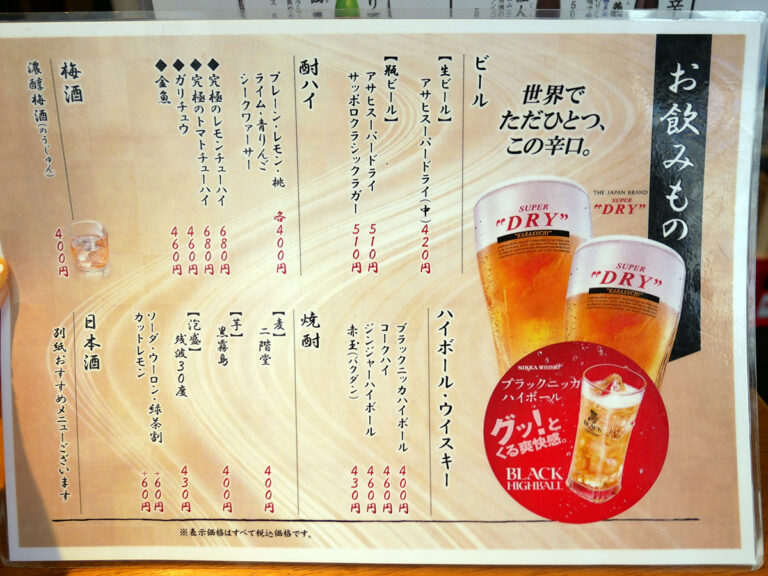 お飲みもの
世界で
ただひとつ、
この辛口。
THE JAPAN BRAND
SUPER
"DRY"
SUPER
"DRY"
"KARAKUCHI"
SUPER
"DRY"
"KARAKUCHI"
NIKKA WHISKY
ブラックニッカ
ハイボール
グッ!と
くる爽快感。
BLACK
HIGHBALL
ビール
【生ビール】
アサヒスーパードライ(中) 420円
【瓶ビール】
アサヒスーパードライ 510円
サッポロクラシックラガー 510円
酎ハイ
プレーン・レモン・桃
ライム・青りんご
シークワァーサー
各400円
◆究極のレモンチューハイ 680円
◆究極のトマトチューハイ 680円
◆ガリチュウ 460円
◆金魚 460円
梅酒
濃醇梅酒(のうじゅん) 400円
ハイボール・ウイスキー
ブラックニッカハイボール 400円
コークハイ 460円
ジンジャーハイボール 460円
赤玉(バクダン) 430円
焼酎
【麦】
二階堂 400円
【芋】
黒霧島 400円
【泡盛】
残波30度 430円
ソーダ・ウーロン・緑茶割 +60円
カットレモン +60円
日本酒
別紙おすすめメニューございます
※表示価格はすべて税込価格です。